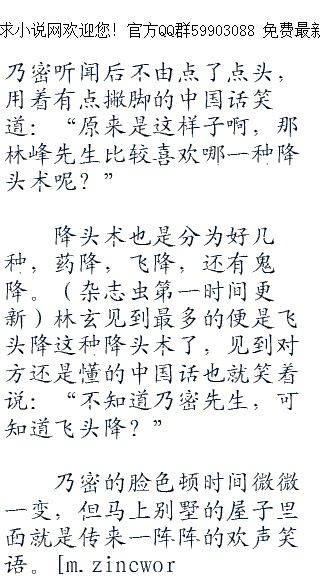 求小说网欢迎您! 官方QQ群59903088 免费最新
乃密听闻后不由点了点头，
用着有点撇脚的中国话笑
道：“原来是这样子啊，那
林峰先生比较喜欢哪一种降
头术呢？”
降头术也是分为好几
种，药降，飞降，还有鬼
降。（杂志虫第一时间更
新）林玄见到最多的便是飞
头降这种降头术了，见到对
方还是懂的中国话也就笑着
说：“不知道乃密先生，可
知道飞头降？”
乃密的脸色顿时间微微
一变，但马上别墅的屋子里
面就是传来一阵阵的欢声笑
语。[m.zincwor